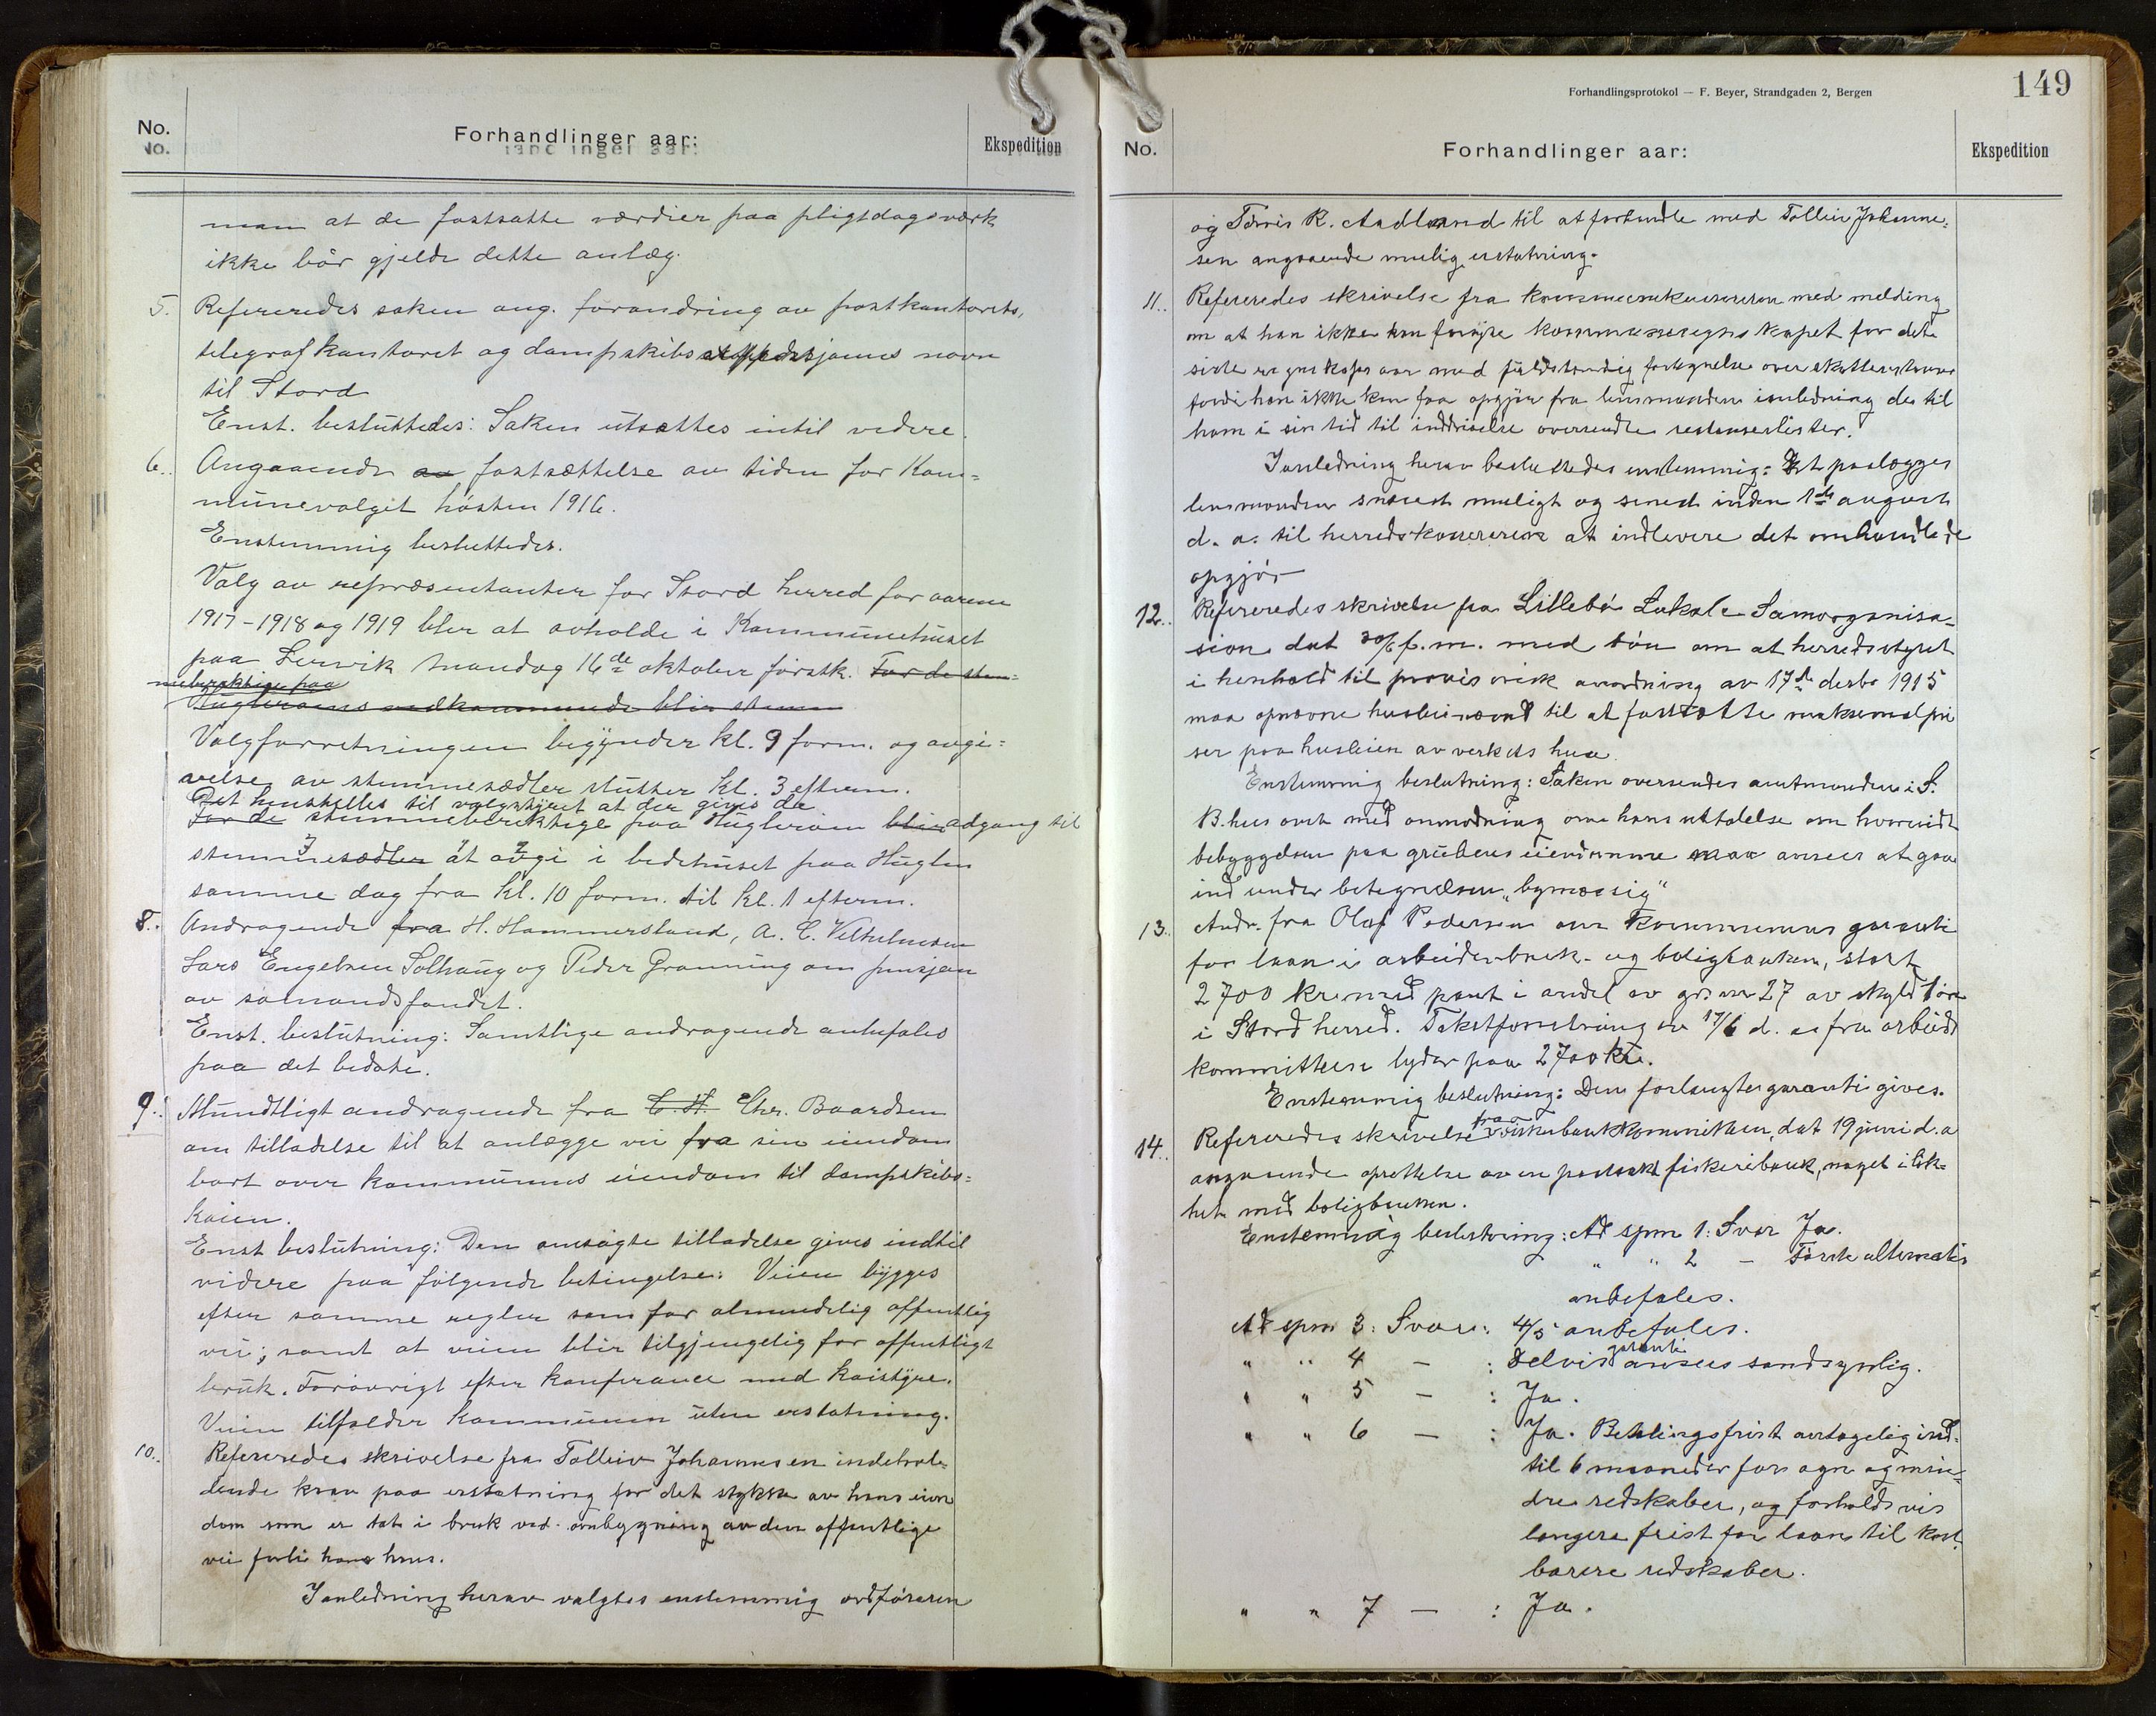 No.
Forhandlinger aar:
Ekspedition
man at de fastsatte værdier paa pligtdagsværk
ikke bör gjelde dette anlæg.
5. Refereredes saken ang. forandring av postkontorets,
telegrafkontoret og dampskibsekspedisjonens navn
til Stord
Enst. besluttedes: Saken utsættes intil videre.
6. Angaaende fastsættelse av tiden for Kom=
munevalget hösten 1916.
Enstemmig besluttedes.
Valg av repræsentanter for Stord herred for aarene
1917-1918 og 1919 blir at avholde i Kommunehuset
paa Lervik mandag 16de oktober förstk. For de stem=
meberettige paa
Huglerøens vedkommende blir stemm
Valgforretningen begynder kl. 9 form. og avgi=
velse av stemmesædler slutter kl. 3 efterm.
Det henstilles til valgstyret at der gives de
For de stemmeberettige paa Hugleröen blir adgang til
stemmesædler at avgi i bedehuset paa Huglen
samme dag fra kl. 10 form. til kl. 1 efterm.
8. Andragende fra H. Hammersland, A. C. Vilhelmsen
Lars Engelsen Solhaug og Peder Gronning om pensjon
av sømandsfondet.
Enst. beslutning: Samtlige andragende anbefales
paa det bedste.
9. Mundtligt andragende fra C. H. Chr. Baardsen
om tilladelse til at anlægge vei fra sin eiendom
bort over kommunens eiendom til dampskibs=
kaien.
Enst beslutning: Den ansögte tilladelse gives indtil
videre paa fölgende betingelse: Veien bygges
efter samme regler som for almindelig offentlig
vei; samt at veien blir tilgjengelig for offentligt
bruk. Forövrigt efter konferance med kaistyre.
Veien tilfalder kommunen uten erstatning.
10. Refereredes skrivelse fra Tolleiv Johannesen indehol=
dende krav paa erstatning for det stykke av hans eien
dom som er tat i bruk ved ombygning av den offentlige
vei forbi hans hus.
I anledning herav valgtes enstemmig ordföreren
149
Forhandlingsprotokol — F. Beyer, Strandgaden 2, Bergen
No.
Forhandlinger aar:
Ekspedition
og Tørris R. Aadland til at forhandle med Tolleiv Johanne=
sen angaaende mulig erstatning.
11. Refereredes skrivelse fra kommunekassereren med melding
om at han ikke kan forsyne kommuneregnskapet for det
siste regnskapsaar med fuldstændig fortegnelse over skatterestanser
fordi han ikke kan faa opgjör fra lensmanden i anledning de til
ham i sin tid til inddrivelse oversendte restanselister.
I anledning herav besluttedes enstemmig: Det paalægges
lensmanden snarest muligt og senest inden 1ste august
d. a. til herredskassereren at indlevere det omhandlede
opgjör
12. Refereredes skrivelse fra Lillebö Lokale Samorganisa-
sion dat 20/6 f. m. med bön om at herredsstyret
i henhold til provisorisk anordning av 17de desbr 1915
maa opnævne husleienævnd til at fastsætte maksimalpri
ser paa husleien av verkets hus.
Enstemmig beslutning: Saken oversendes amtmanden i S.
B.hus amt med anmodning om hans uttalelse om hvorvidt
bebyggelsen paa grubens eiendomme maa ansees at gaa
ind under betegnelsen „bymæssig"
13. Andr. fra Olaf Pedersen om kommunens garanti
for laan i arbeiderbruk- og boligbanken, stort
2700 kr. med pant i andel av grs nr 27 av skyld øre
i Stord herred. Takstforretning av 17/6 d. a fra arbeids
kommitteen lyder paa 2700 kr.
Enstemmig beslutning: Den forlangte garanti gives.
14. Refereredes skrivelse fra fiskebankkommitteen, dat 19 juni d. a
angaaende oprettelse av en paatænkt fiskeribank, noget i lik=
het med boligbanken.
Enstemmig beslutning: Ad spm 1: Svar Ja.
" " 2 - Förste alternativ
anbefales.
Ad spm 3: Svar: 4/5 anbefales.
" " 4 - : Delvis garanti ansees sandsynlig.
" " 5 - : Ja.
" " 6 - : Ja. Betalingsfrist antagelig ind=
til 6 maaneder for agn og min=
dre redskaber, og forholdsvis
længere frist for laan til kost=
barere redskaber.
" " 7 - : Ja.